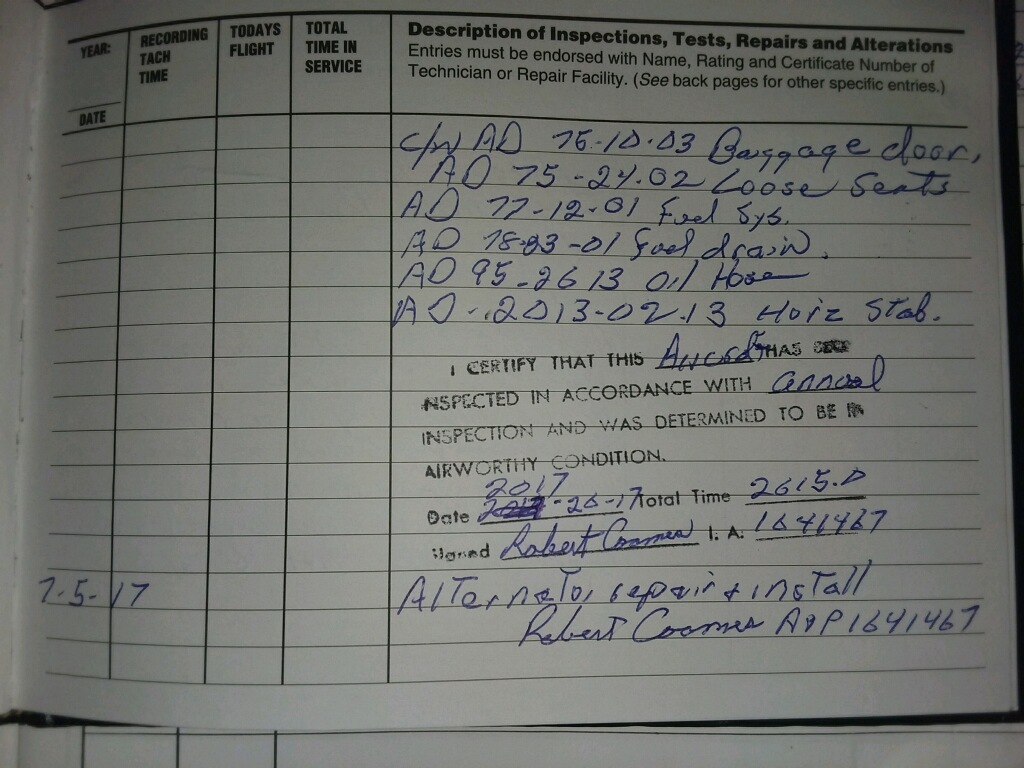 YEAR:
DATE
RECORDING
TACH
TIME
TODAYS
FLIGHT
TOTAL
TIME IN
SERVICE
Description of Inspections, Tests, Repairs and Alterations
Entries must be endorsed with Name, Rating and Certificate Number of
Technician or Repair Facility. (See back pages for other specific entries.)
c/w AD 76-10-03 Baggage door,
AD 75-24-02 Loose Seats
AD 77-12-01 Fuel Sys.
AD 78-23-01 fuel drain.
AD 95-26 13 Oil Hose
AD-2013-02-13 Horiz Stab.
I CERTIFY THAT THIS HAS
INSPECTED IN ACCORDANCE WITH annual
INSPECTION AND WAS DETERMINED TO BE IN
AIRWORTHY CONDITION.
2017
Date -26-17 Total Time 2615.0
Signed Robert I. A. 1641467
7-5-17 Alternator repair & install
Robert A&P 1641467